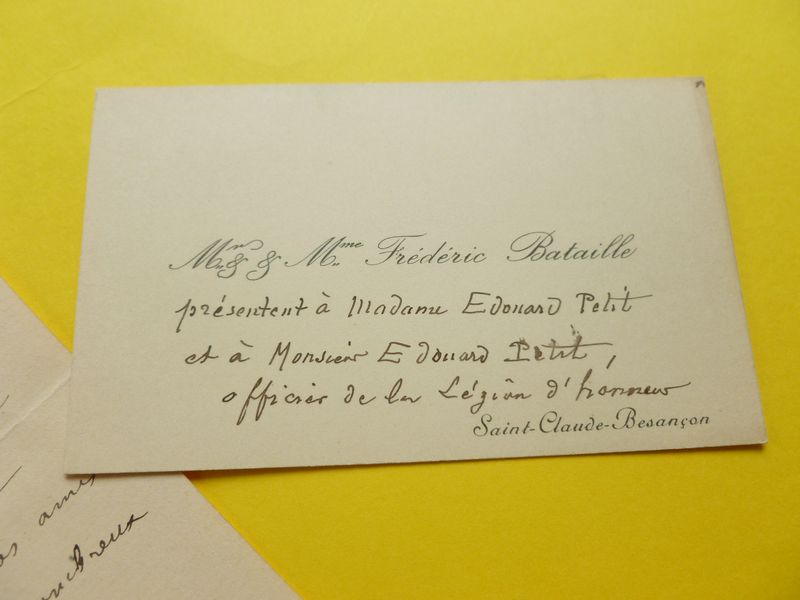 Mr & Mme Frédéric Bataille
présentent à Madame Edouard Petit
et à Monsieur Edouard Petit,
officier de la Légion d'honneur
Saint-Claude-Besançon
amis